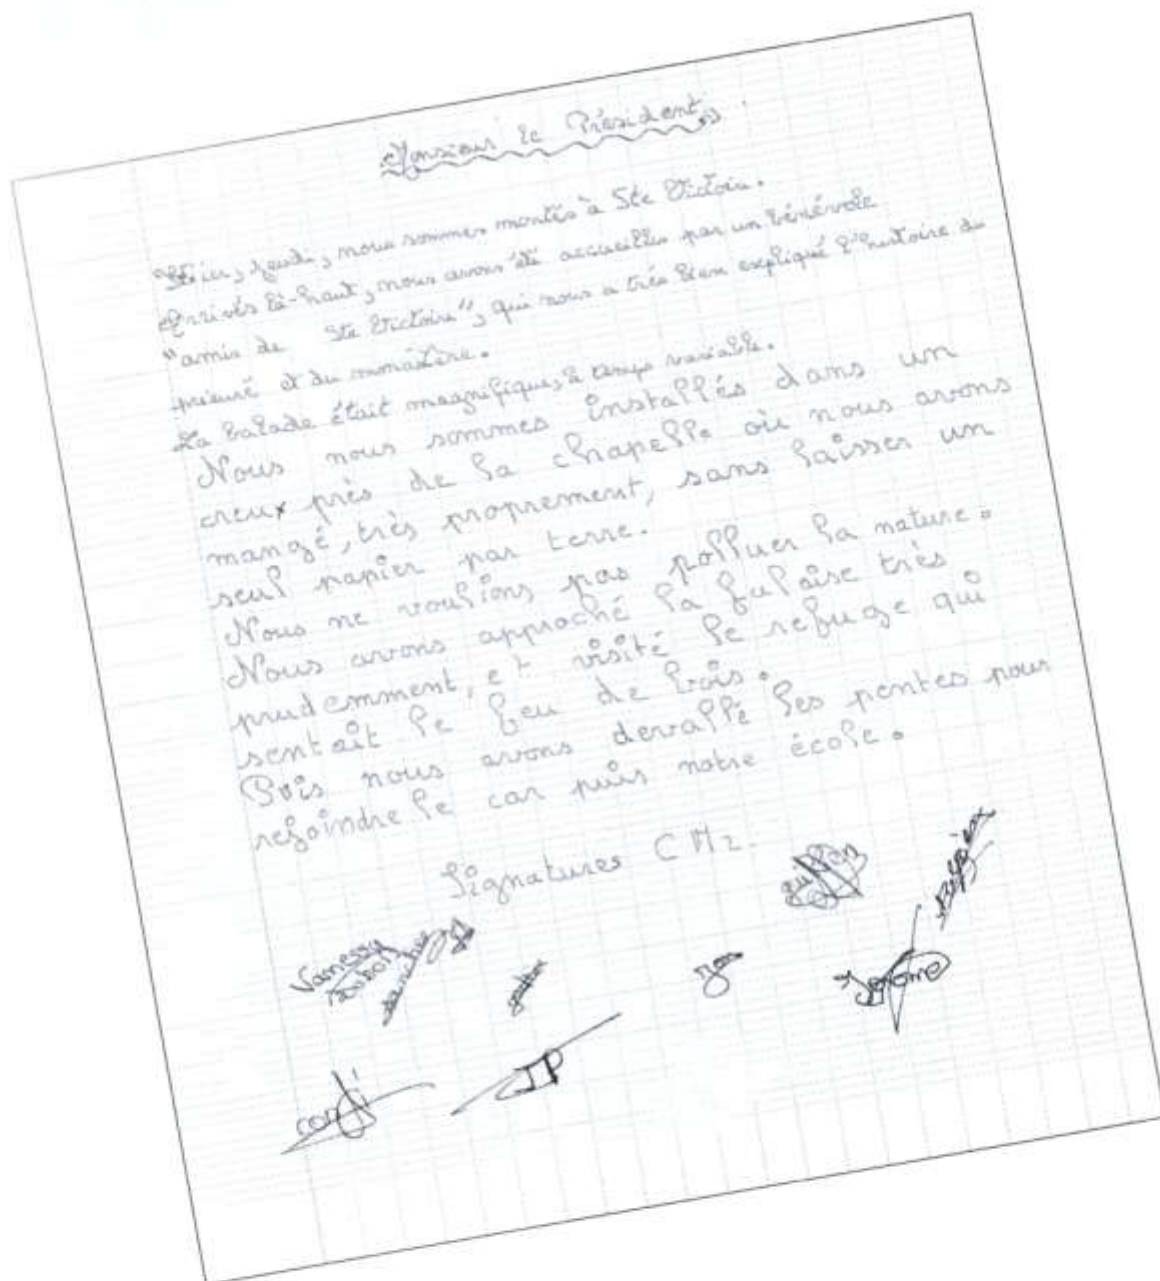 Monsieur le Président,
Hier, jeudi, nous sommes montés à Ste Victoire.
Arrivés là-haut, nous avons été accueillis par un bénévole
"amis de Ste Victoire", qui nous a très bien expliqué l'histoire du
prieuré et du monastère.
La balade était magnifique, le temps variable.
Nous nous sommes installés dans un
creux près de la chapelle où nous avons
mangé, très proprement, sans laisser un
seul papier par terre.
Nous ne voulions pas polluer la nature.
Nous avons approché la falaise très
prudemment, et visité le refuge qui
sentait le feu de bois.
Puis nous avons devallé les pentes pour
rejoindre le car puis notre école.
Signatures CM2.
Vanessa
Jérome